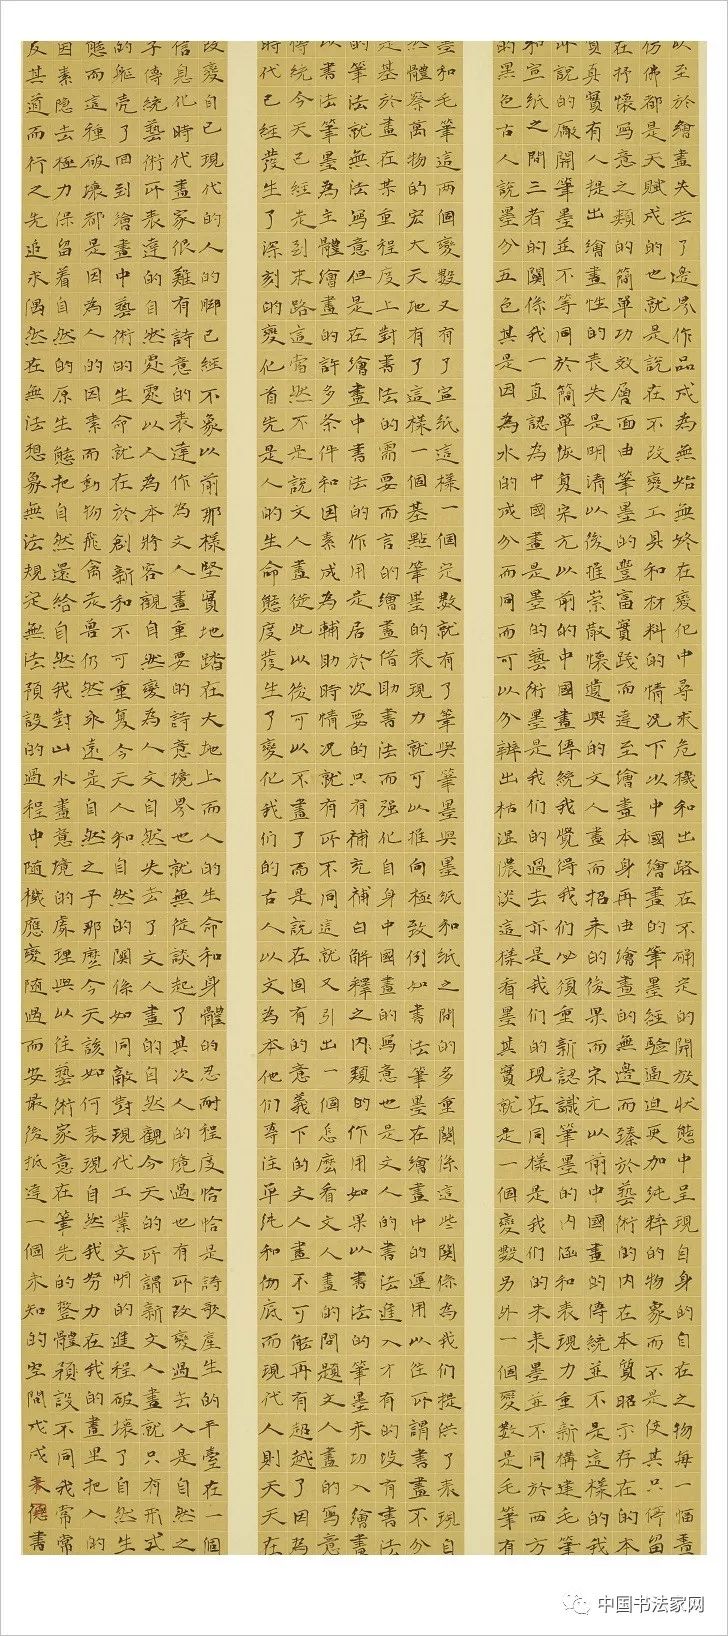 以至於繪畫失去了邊界作品成為無始無終在變化中尋求危機和出路在不確定的開放狀態中呈現自身的自在之物每一幅畫
仿佛都是天賦成的也就是說在不改變工具和材料的情况下以中國繪畫的筆墨經驗逼迫更加純粹的物象而不是使其只停留
在抒懷寫意之類的簡單功效層面由筆墨的豐富實踐而達至繪畫本身再由繪畫的無邊而臻於藝術的內在本質昭示存在的本
質真實有人提出繪畫性的喪失是明清以後推崇散懷遺興的文人畫而招来的後果而宋元以前中國畫的傳統並不是這樣的我
所說的廠開筆墨並不等同於簡單恢复宋元以前的中國畫傳統我覺得我們必須重新認識筆墨的內涵和表現力重新構建毛筆
和宣紙之間三者的關係我一直認為中國畫是墨的藝術墨是我們的過去亦是我們的現在同樣是我們的未来墨並不同於西方
的黑色古人說墨分五色其是因為水的成分而同而可以分辨出枯濕濃淡這樣看墨其實就是一個變數另外一個變數是毛筆有
墨和毛筆這兩個變數又有了宣紙這樣一個定數就有了筆與筆墨與墨紙和紙之間的多重關係這些關係為我們提供了表現自
然體察萬物的宏大天地有了這樣一個基點筆墨的表現力就可以推向極致例如書法筆墨在繪畫中的運用以往所謂書畫不分
是基於畫在某重程度上對書法的需要而言的繪畫借助書法而强化自身中國畫的寫意也是文人的書法進入才有的没有書法
的筆法就無法寫意但是在繪畫中書法的作用是居於次要的只有補充補白解釋之內類的作用如果以書法的筆墨来功入繪畫
以書法筆墨為主體繪畫的許多条件和因素成為輔助時情况就有所不同這就又引出一個怎麼看文人畫的問題文人畫的寫意
傳統今天已經走到末路這當然不是說文人畫從此以後可以不畫了而是說在固有的意義下的文人畫不可能再有超越了因為
時代已經發生了深刻的變化首先是人的生命態度發生了變化我們的古人以文為本他們專注單純和彻底而現代人則天天在
改變自己現代的人的腳已經不象以前那樣堅實地踏在大地上而人的生命和身體的忍耐程度恰恰是詩歌產生的平臺在一個
信息化時代畫家很難有詩意的表達作為文人畫重要的詩意境界也就無從談起了其次人的境遇也有所改變過去人是自然之
子傳統藝術所表達的自然處處以人為本將客觀自然變為人文自然失去了文人畫的自然觀今天的所謂新文人畫就只有形式
的軀壳了回到繪畫中藝術的生命就在於創新和不可重复今天人和自然的關係如同敵對現代工業文明的進程破壞了自然生
態而這種破壞都是因為人的因素而動物飛禽走獸仍然永遠是自然之子那麼今天該如何表現自然我努力在我的畫里把人的
因素隐去極力保留着自然的原生態把自然還給自然我對山水畫意境的處理與以往藝術家意在筆先的整體預設不同我常常
反其道而行之先追求偶然在無法想象無法規定無法預設的過程中随機應變随遇而安最後抵達一個未知的空間戊戌德書
中国书法家网